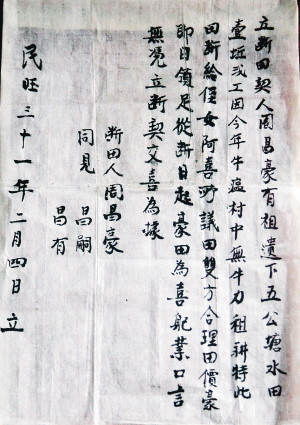 立断田契人周昌豪有祖遗下五公塘水田
壹坵弍工因今年牛瘟村中無牛力租耕特此
田断給侄女阿喜所議田雙方合理田價豪
即日領足從断日起豪田為喜舵業口言
無凭立断契交喜為據
断田人周昌豪
同見 昌嗣
昌有
民旺三十一年二月四日立